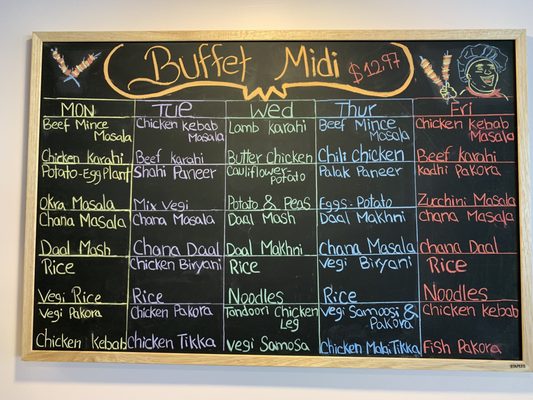 Buffet Midi $12.97
MON TUE WED THUR FRI
Beef Mince Masala Chicken Kebab Masala Lamb Karahi Beef Mince Masala Chicken Kebab Masala
Chicken Karahi Beef Karahi Butter Chicken Chili Chicken Beef Karahi
Potato-Egg Plant Shahi Paneer Cauliflower-Potato Palak Paneer Kadhi Pakora
Okra Masala Mix Vegi Potato & Peas Eggs-Potato Zucchini Masala
Chana Masala Chana Masala Daal Mash Daal Makhni Chana Masala
Daal Mash Chana Daal Daal Makhni Chana Masala Chana Daal
Rice Chicken Biryani Rice Vegi Biryani Rice
Vegi Rice Rice Noodles Rice Noodles
Vegi Pakora Chicken Pakora Tandoori Chicken Leg Vegi Samoosi & Pakora Chicken Kebab
Chicken Kebab Chicken Tikka Vegi Samosa Chicken Malai Tikka Fish Pakora
STAPLES